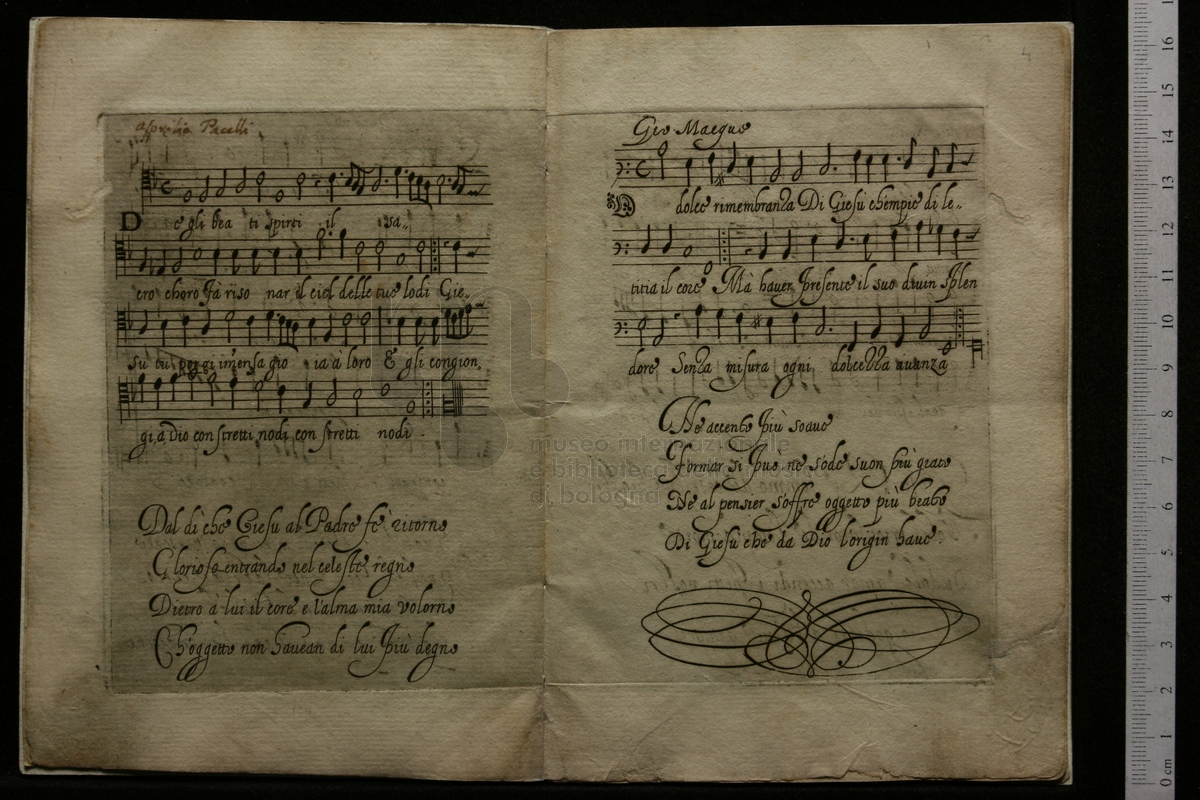 Pacelli
Degli bea ti spirti il sa,,
cro choro fà riso nar il ciel delle tue lodi Gie,,
su tu porgi im̃ensa gio ia a loro E gli congion,,
gi, a Dio con stretti nodi con stretti nodi .
Dal dì che Giesu al Padre fe ritorno
Glorioso entrando nel celeste regno
Dietro à lui il core e l'alma mia volorno
Ch'oggetto non havean di lui più degno
4
Gio Macque
O dolce rimembranza Di Giesù ch'empie di le,,
titia il core Mà haver presente il suo divin splen
dore Senza misura ogni dolcezza avanza
Ne accento più soave
Formar si può ne s'ode suon più grato
Ne al pensier s'offre oggetto più beato
Di Giesù che da Dio l'origin have .
museo internazionale
e biblioteca
di bologna
0 cm 1 2 3 4 5 6 7 8 9 10 11 12 13 14 15 16